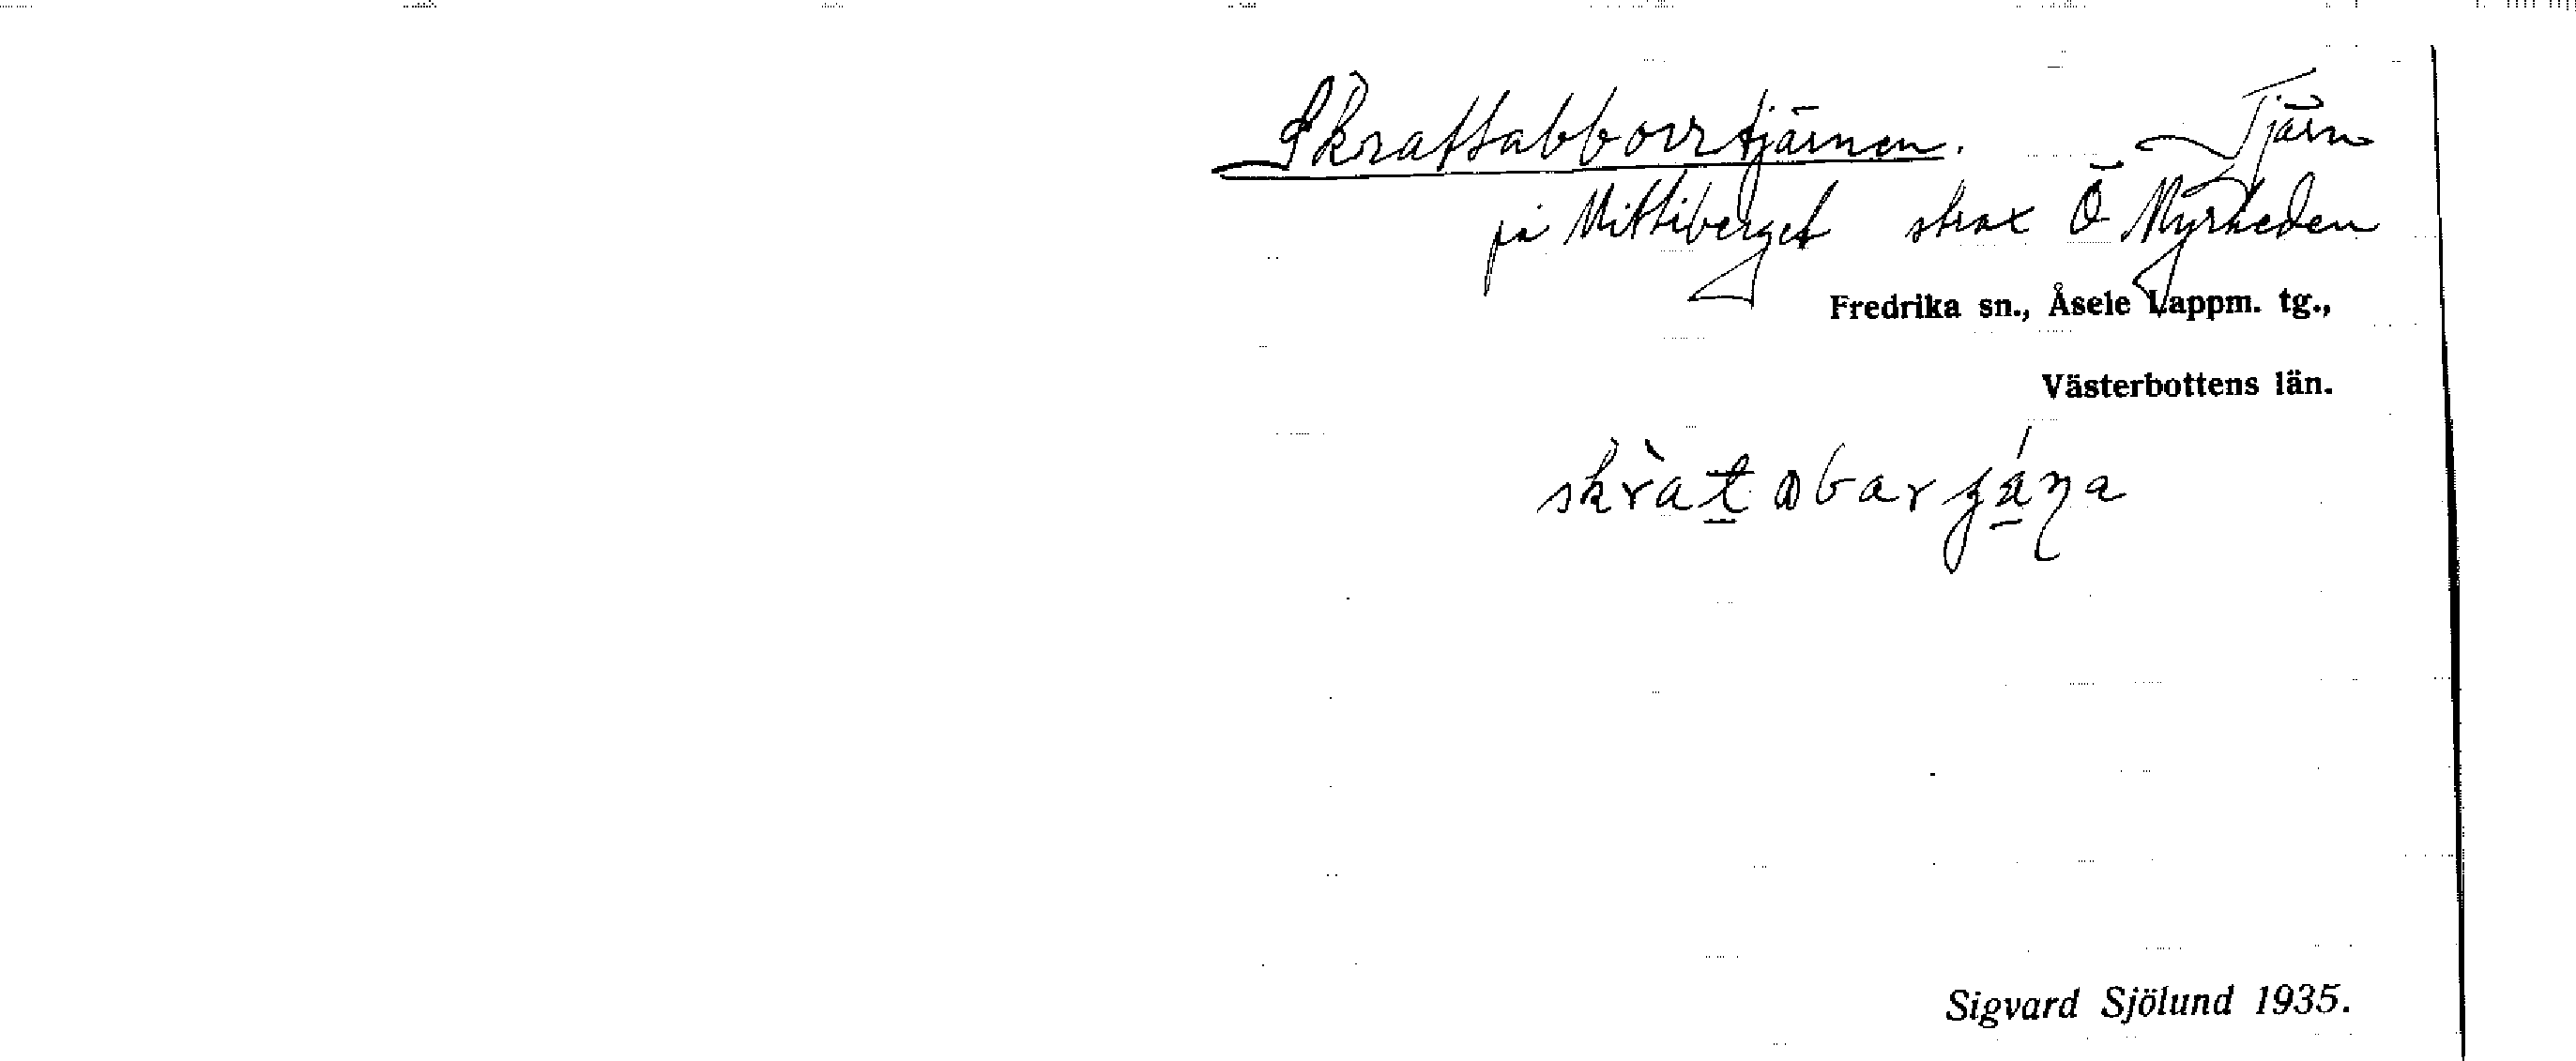 Skrattabborrtjärnen. Tjärn
på Mittiberget strax Ö Myrheden
Fredrika sn., Åsele Lappm. tg.,
Västerbottens län.
Sigvard Sjölund 1935.